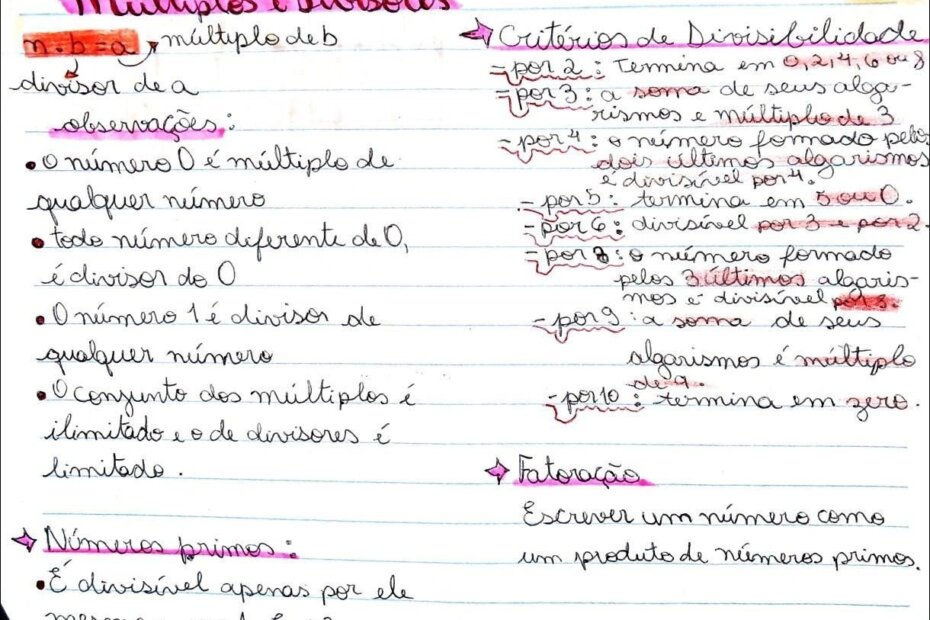 Múltiplos e Divisores
n . b = a múltiplo de b
divisor de a
observações:
• O número 0 é múltiplo de
qualquer número
• todo número diferente de 0,
é divisor do 0
• O número 1 é divisor de
qualquer número
• O conjunto dos múltiplos é
ilimitado e o de divisores é
limitado.
Números primos:
• É divisível apenas por ele
Critérios de Divisibilidade
- por 2: Termina em 0, 2, 4, 6 ou 8
- por 3: a soma de seus alga-
rismos e múltiplo de 3
- por 4: o número formado pelos
dois últimos algarismos
é divisível por 4.
- por 5: termina em 5 ou 0.
- por 6: divisível por 3 e por 2.
- por 8: o número formado
pelos 3 últimos algaris-
mos é divisível por
- por 9: a soma de seus
algarismos é múltiplo
de 9.
- por 10: termina em zero.
Fatoração
Escrever um número como
um produto de números primos.